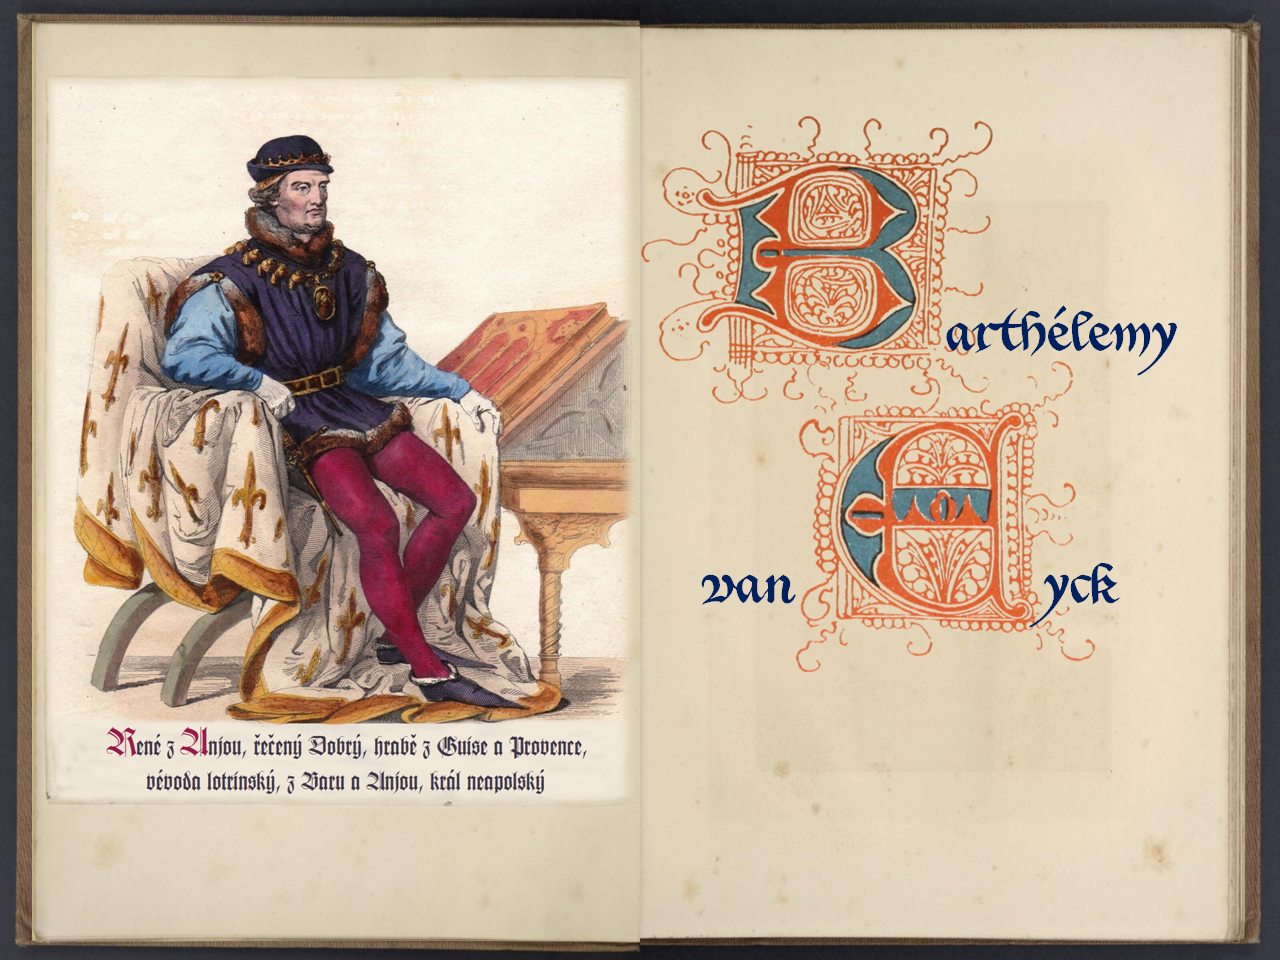 René z Anjou, řečený Dobrý, hrabě z Guise a Provence,
vévoda lotrinský, z Baru a Anjou, král neapolský
Barthélemy
van Eyck